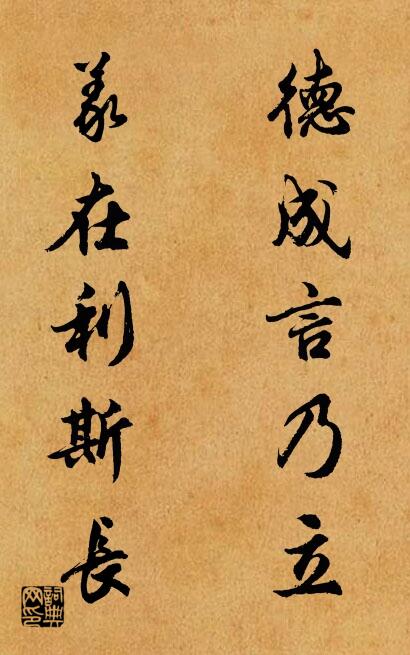 德成言乃立
義在利斯長
詞典網印